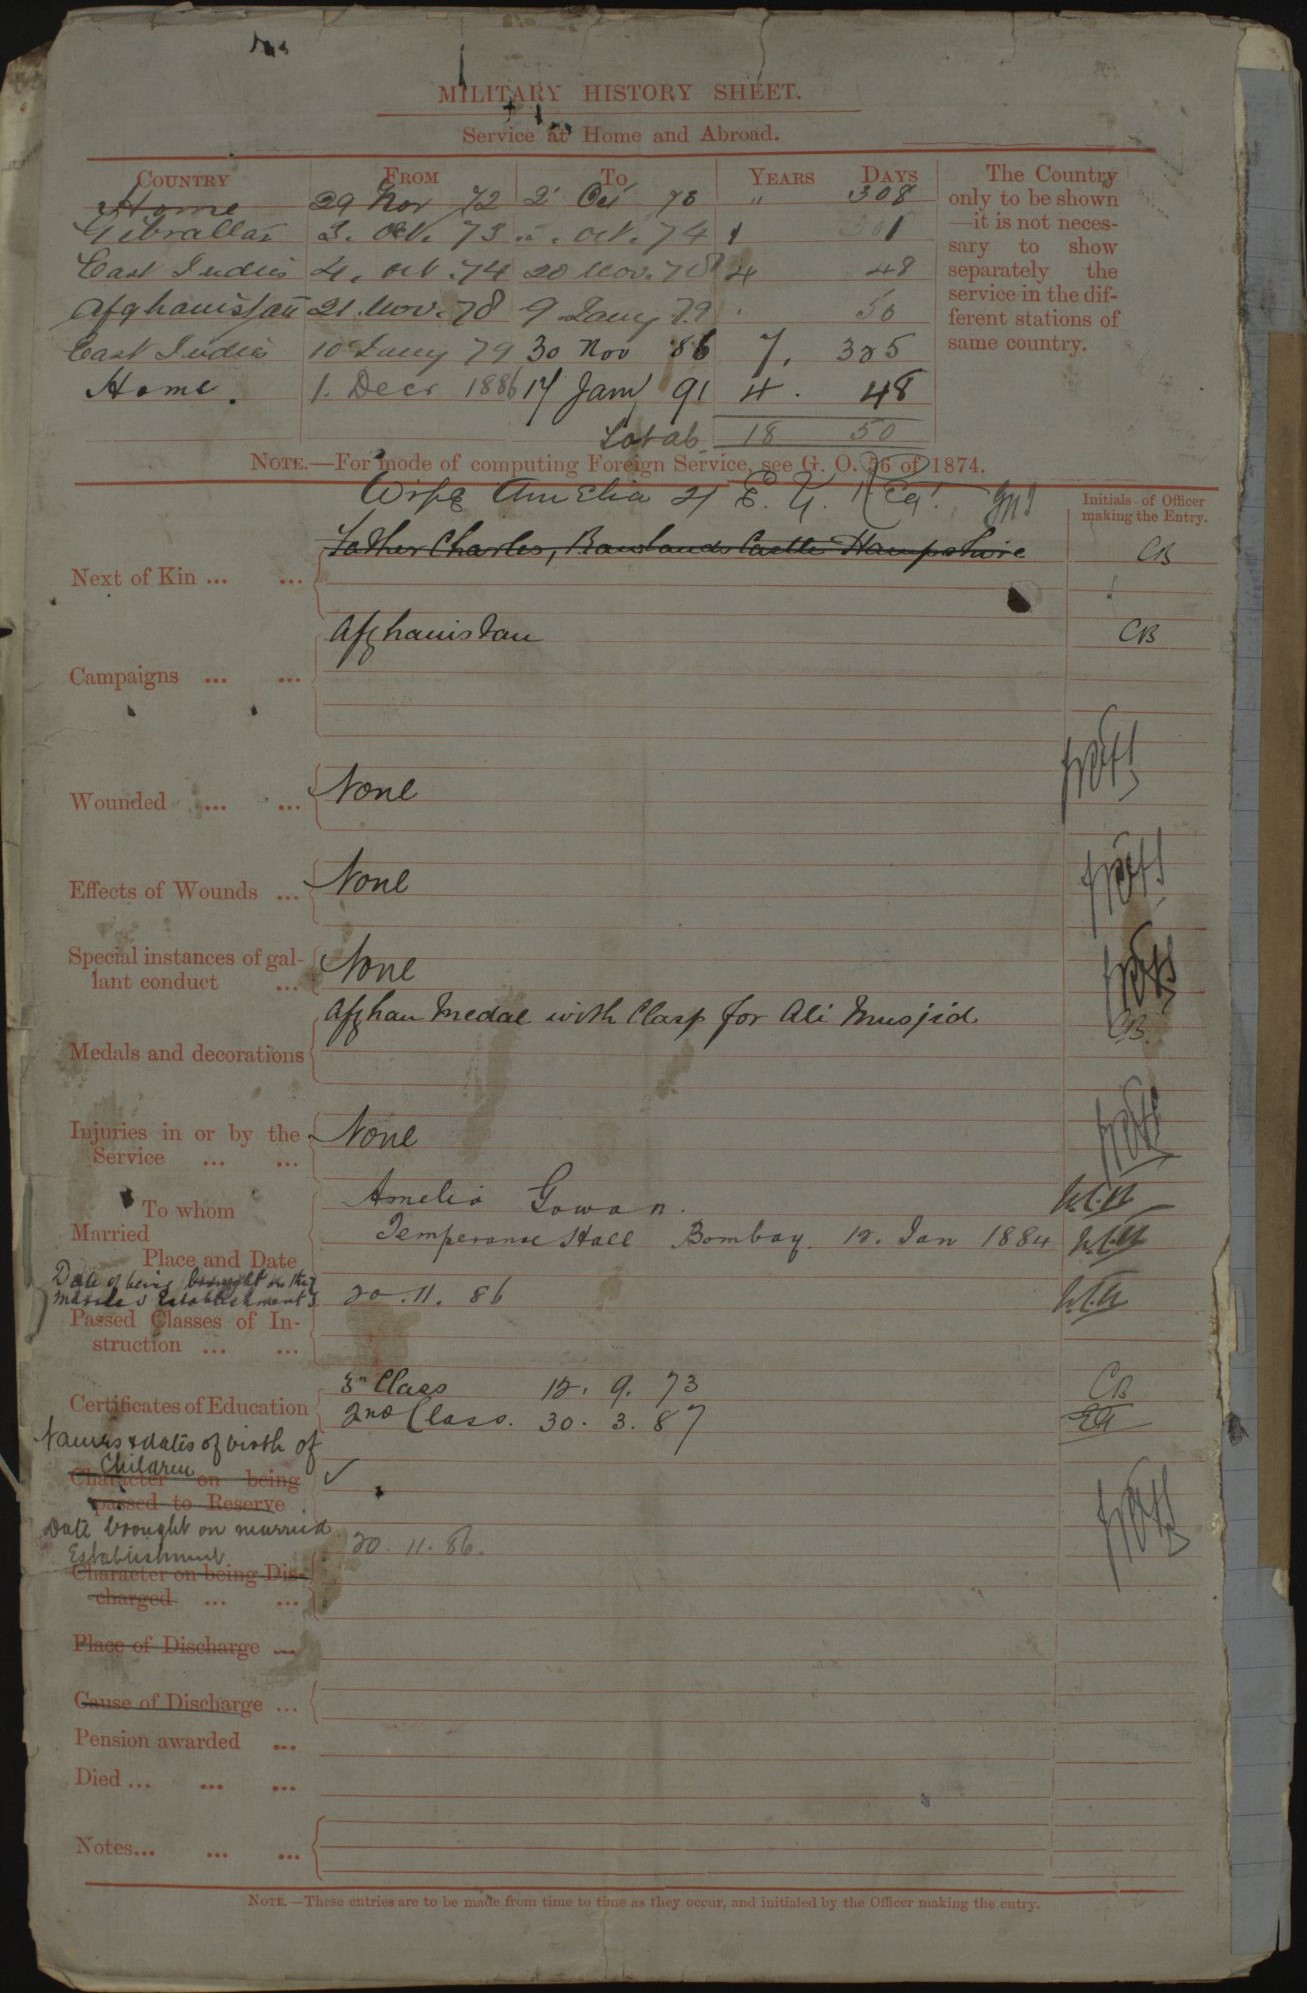 MILITARY HISTORY SHEET.
Service at Home and Abroad.
COUNTRY FROM TO YEARS DAYS
Home 29 Nov 72 2 Oct 73 " 308
Gibraltar 3. Oct. 73 . Oct. 74 1 1
East Indies 4. Oct. 74 20 Nov. 78 4 48
Afghanistan 21. Nov. 78 9 Jany 79 50
East Indies 10 Jany 79 30 Nov 86 7. 325
Home. 1. Decr 1886 17 Jany 91 4. 48
Total 18 50
The Country
only to be shown
—it is not neces-
sary to show
separately the
service in the dif-
ferent stations of
same country.
NOTE.—For mode of computing Foreign Service, see G. O. 56 of 1874.
Wife Amelia 21 E. Y.
Initials of Officer
making the Entry.
Father Charles, Rowlands Castle Hampshire CB
Next of Kin ... ...
Afghanistan CB
Campaigns ... ...
Wounded ... ... None
Effects of Wounds ... None
Special instances of gal-
lant conduct ... None
Afghan Medal with Clasp for Ali Musjid CB.
Medals and decorations
Injuries in or by the None
Service ... ...
To whom Amelia Gowan.
Married
Place and Date Temperance Hall Bombay. 12. Jan 1884
Date of being brought on the
Married Establishment 20. 11. 86
Passed Classes of In-
struction ... ...
3rd Class 12. 9. 73 CB
Certificates of Education
2nd Class. 30. 3. 87
Names & dates of birth of
Children
Character on being
passed to Reserve
Date brought on married
Establishment 20. 11. 86.
Character on being Dis-
charged ... ...
Place of Discharge ...
Cause of Discharge ...
Pension awarded ...
Died ... ... ...
Notes... ... ...
NOTE.—These entries are to be made from time to time as they occur, and initialed by the Officer making the entry.